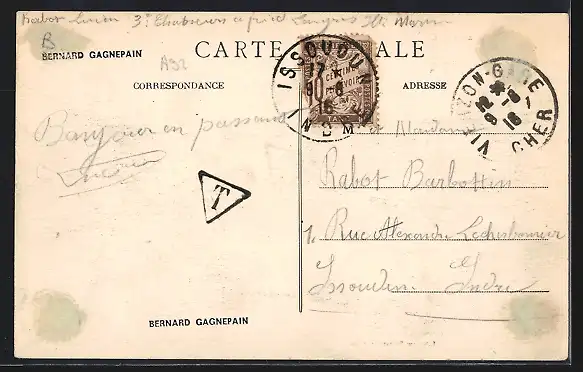 Rabot Lucien 3e Chasseurs à pied Langres Hte Marne
B
BERNARD GAGNEPAIN
A32
CARTE ALE
ISSOUDUN
17
8
16
INDRE
CENTIMES
CORRESPONDANCE
ADRESSE
VIERZON-GARE
16
CHER
Bonjour en passant
Lucien
T
M Madame
Rabot Barbottin
1, Rue Alexandre Ledherbonnier
Issoudun Indre
BERNARD GAGNEPAIN